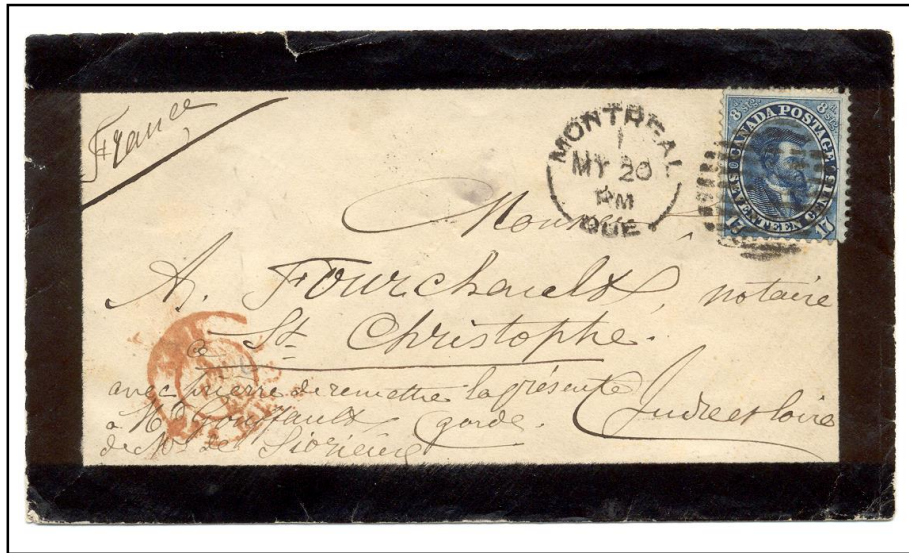 France
MONTREAL
1
MY 20
PM
QUE
8d stg. CANADA POSTAGE 8d stg.
SEVENTEEN CENTS
17
Monsieur
A. Fourchault, notaire
à St Christophe.
avec prière de remettre la présente
Indre et Loire
à garde.
de